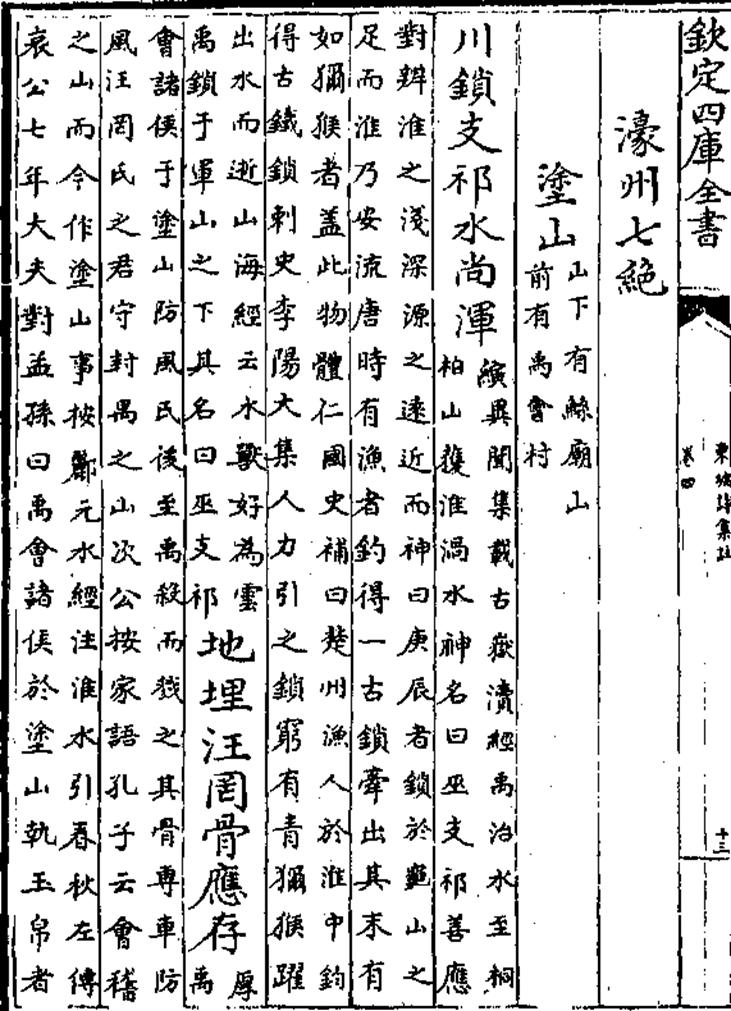 欽定四庫全書
東坡詩集註
卷四
十三
濠州七絶
塗山
山下有鯀廟山
前有禹會村
川鎖支祁水尚渾
縯異聞集載古嶽瀆經禹治水至桐
柏山獲淮渦水神名曰巫支祁善應
對辨淮之淺深源之遠近而神曰庚辰者鎖於龜山之
足而淮乃安流唐時有漁者釣得一古鎖牽出其末有
如獼猴者盖此物體仁國史補曰楚州漁人於淮中鈎
得古鐵鎖刺史李陽大集人力引之鎖窮有青獼猴躍
出水而逝山海經云水獸好為雲
禹鎖于軍山之下其名曰巫支祁
地埋汪罔骨應存
厚
禹
會諸侯于塗山防風氏後至禹殺而戮之其骨専車防
風汪罔氏之君守封禺之山次公按家語孔子云會稽
之山而今作塗山事按酈元水經注淮水引春秋左傳
哀公七年大夫對孟孫曰禹會諸侯於塗山執玉帛者